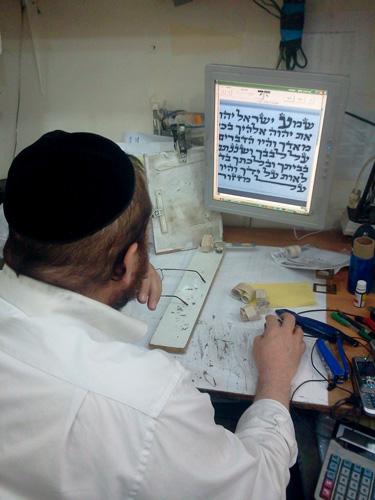 שמע ישראל יהו
את יהוה אלהיך בכל
מאדך והיו הדברים
על לבבך ושננתם
בביתך ובלכתך בד
לאות על ידך והיו
על מזזות